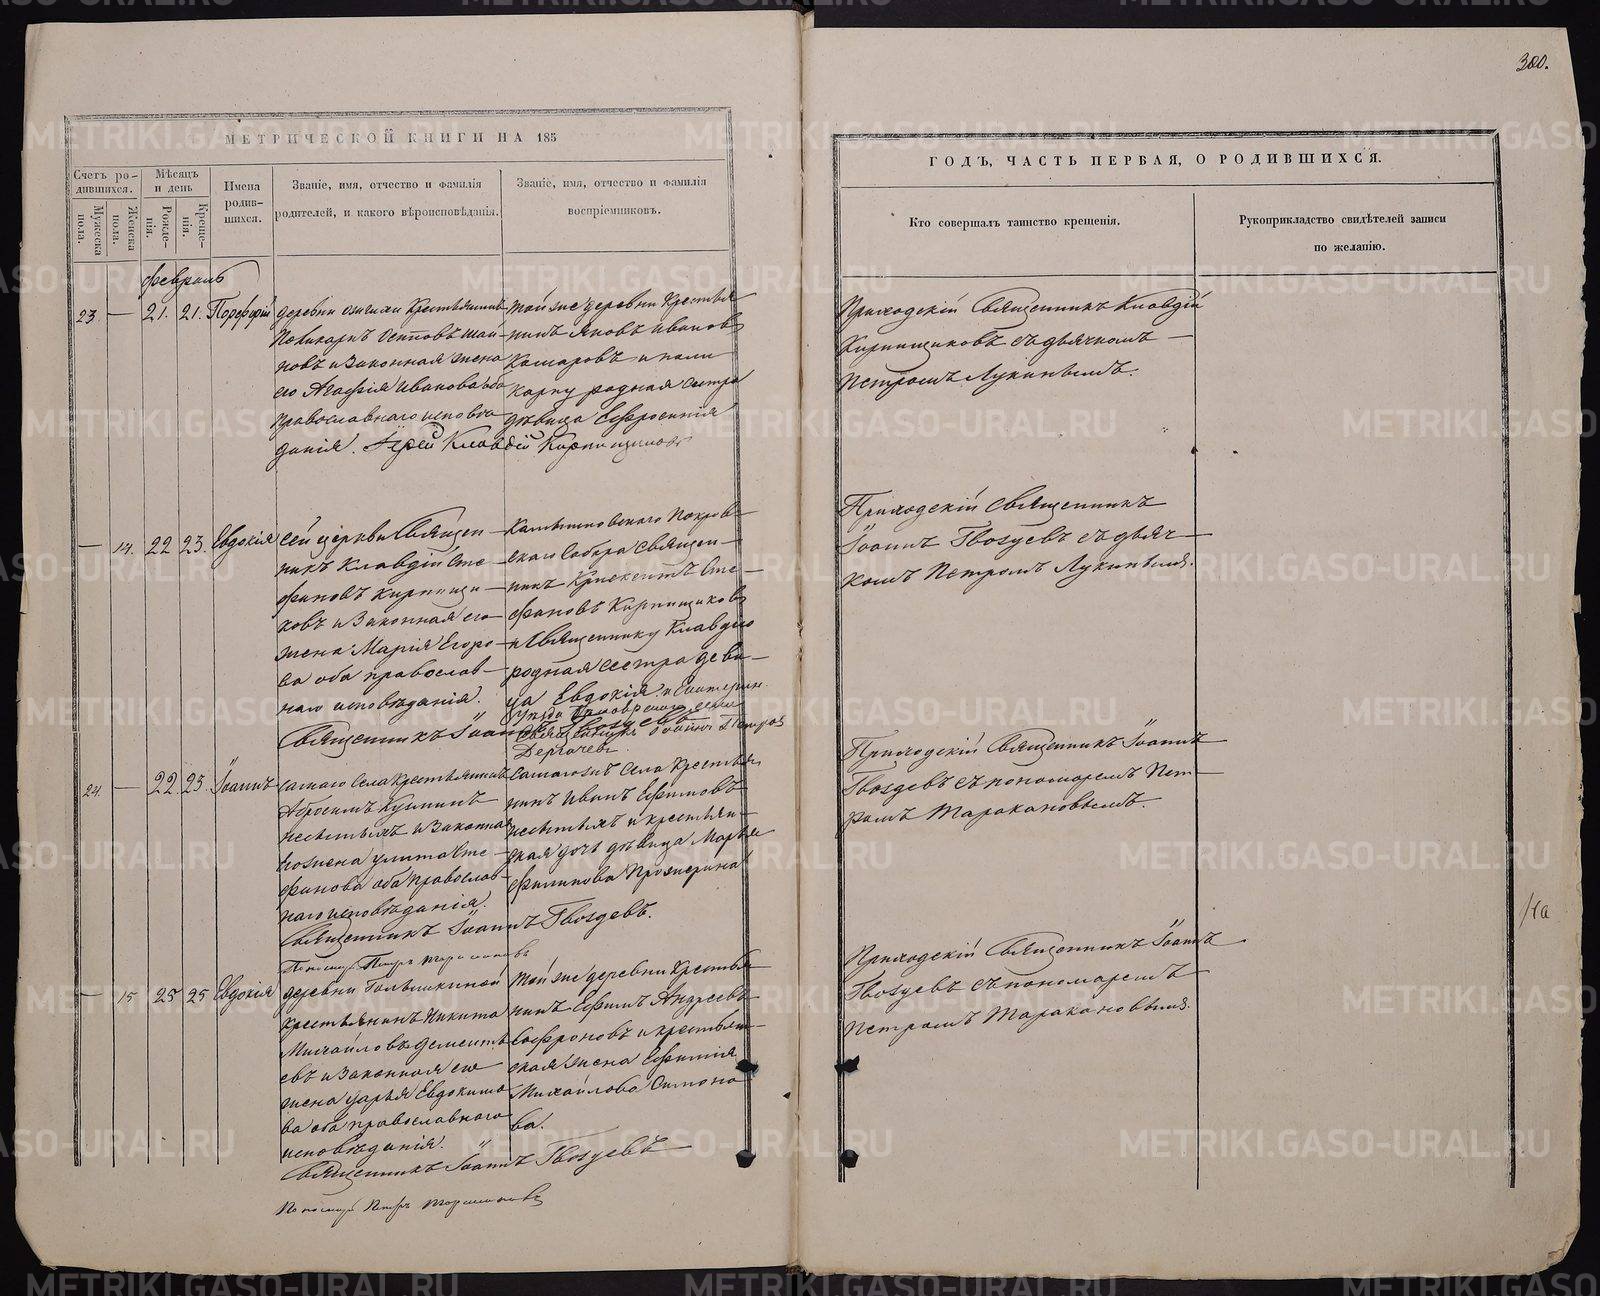 300.
МЕТРИЧЕСКОЙ КНИГИ НА 185
ГОДЪ, ЧАСТЬ ПЕРВАЯ, О РОДИВШИХСЯ.
Счетъ ро-
дившихся.
Мужеска
пола.
Женска
пола.
Мѣсяцъ
и день
Рожде-
нія.
Креще-
нія.
Имена
родив-
шихся.
Званіе, имя, отчество и фамилія
родителей, и какого вѣроисповѣданія.
Званіе, имя, отчество и фамилія
воспріемниковъ.
Кто совершалъ таинство крещенія.
Рукоприкладство свидѣтелей записи
по желанію.
февраль
23. — 21. 21. Порфирій
деревни крестьянинъ
Поликарпъ Осиповъ
новъ и законная жена
его Агафія Иванова оба
православнаго исповѣ
данія. Іерей Клавдій Кирпищиковъ
той же деревни крестья
нинъ Яковъ Ивановъ
Комаровъ и поли
карпу родная сестра
дѣвица Ефросинія
Приходскій Священникъ Клавдій
Кирпищиковъ съ дьячкомъ —
Петромъ Лукинымъ.
— 14. 22 23. Евдокія
сей церкви Священ —
никъ Клавдій Сте —
фановъ Кирпищи —
ковъ и законная его
жена Марія Егоро —
ва оба православ —
наго исповѣданія.
Священникъ Іоаннъ Гвоздевъ
Камышловскаго Покров
скаго Собора Священ —
никъ Сте —
фановъ Кирпищиковъ
и Священнику Клавдію
родная сестра деви —
ца Евдокія и Екатерин.
Уѣзда села
Священникъ Іоаннъ Петровъ
Дергачевъ.
Приходскій Священникъ
Іоаннъ Гвоздевъ съ дьяч —
комъ Петромъ Лукинымъ.
24. — 22 23. Іоаннъ
самаго села крестьянинъ
Абросимъ Кузминъ
и законная
его жена Улита Сте —
фанова оба православ
наго исповѣданія.
Священникъ Іоаннъ Гвоздевъ.
Пономарь Петръ Таракановъ
самаго же села крестья
нинъ Иванъ Ефимовъ
и крестьян —
ская дочь дѣвица Марья
Филипова
Приходскій Священникъ Іоаннъ
Гвоздевъ съ пономаремъ Пет —
ромъ Таракановымъ.
— 15 25 25 Евдокія
деревни Голышкиной
крестьянинъ Никита
Михайловъ Дементь
евъ и законная его
жена Дарья Евдокимо
ва оба православнаго
исповѣданія.
Священникъ Іоаннъ Гвоздевъ
Пономарь Петръ Таракановъ
той же деревни крестья
нинъ Ефимъ Андреевъ
Софроновъ и крестьян —
ская жена Ефимія
Михайлова Симоно
ва.
Приходскій Священникъ Іоаннъ
Гвоздевъ съ пономаремъ
Петромъ Таракановымъ.
METRIKI.GASO-URAL.RU